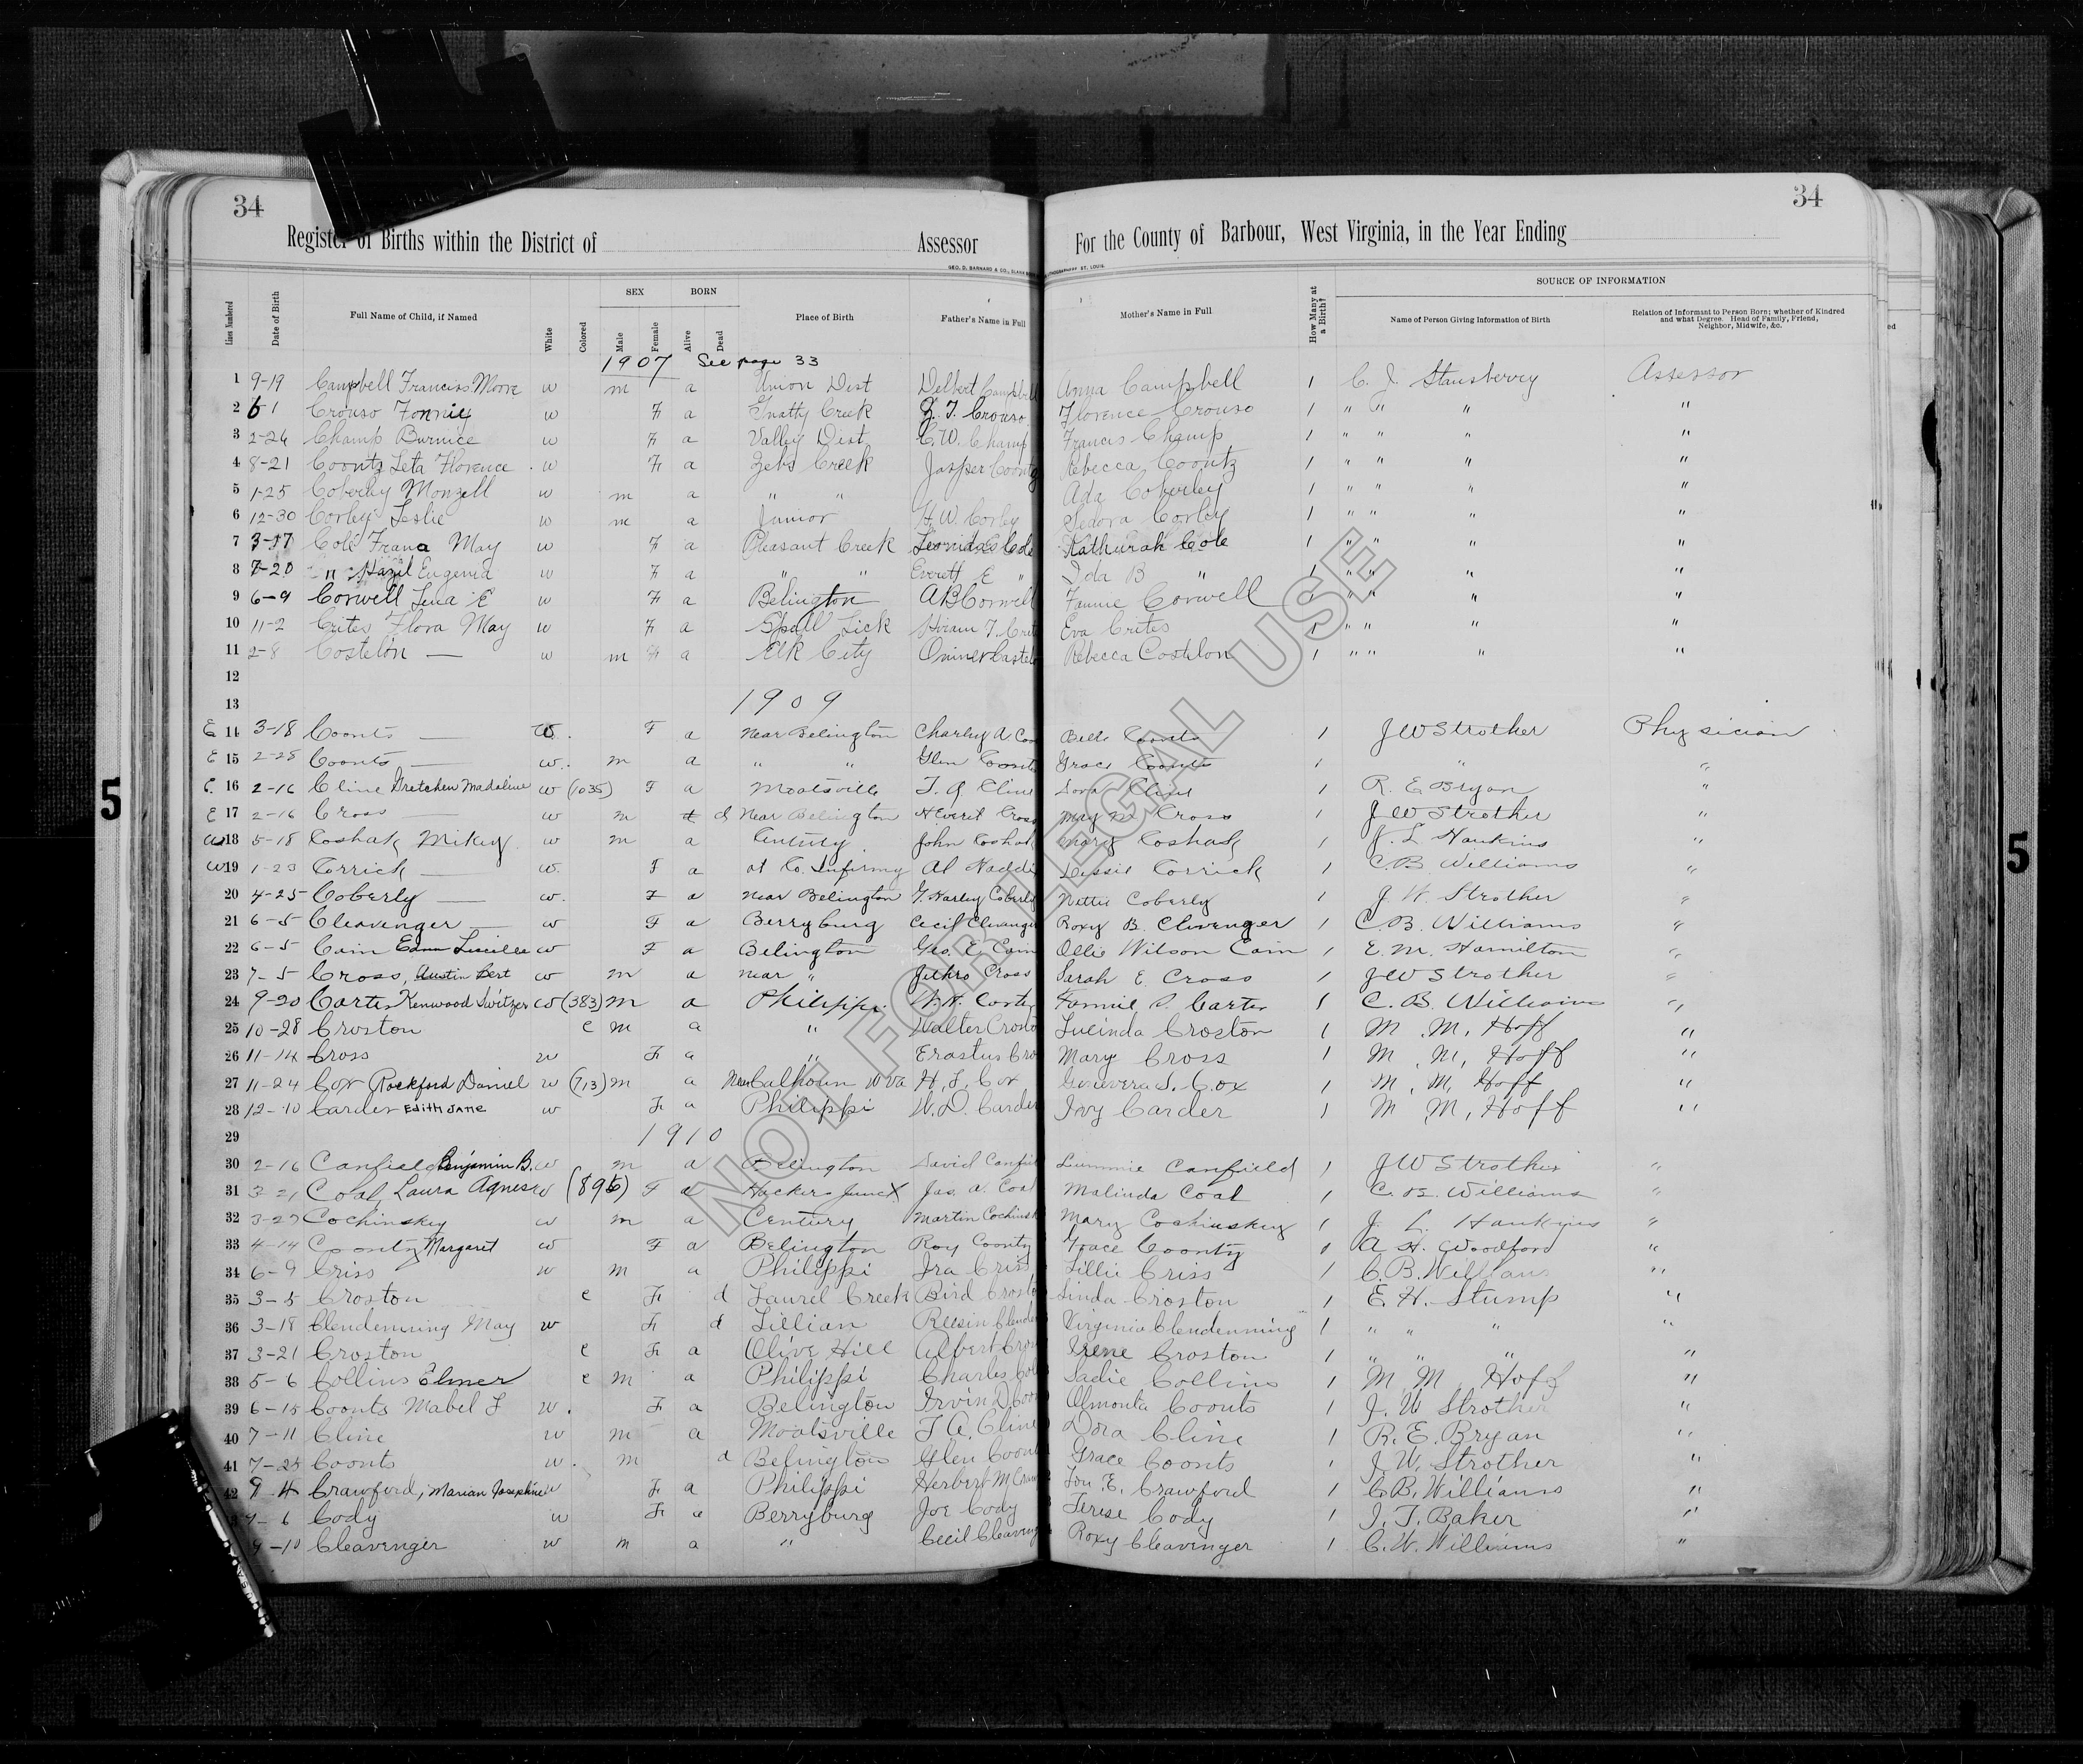 34
34
Register of Births within the District of Assessor For the County of Barbour, West Virginia, in the Year Ending
GEO. D. BARNARD & CO., ST. LOUIS.
SEX BORN SOURCE OF INFORMATION
Lines Numbered Date of Birth Full Name of Child, if Named White Colored Male Female Alive Dead Place of Birth Father's Name in Full Mother's Name in Full How Many at a Birth? Name of Person Giving Information of Birth Relation of Informant to Person Born; whether of Kindred and what Degree. Head of Family, Friend, Neighbor, Midwife, &c.
1907 See page 33
1 9-19 Campbell Franciss Moore w m a Union Dist Delbert Campbell Anna Campbell 1 C. J. Stansberry Assessor
2 6 1 Crouso Fonniey w F a Gnatty Creek Z. T. Crouso Florence Crouso 1 " " " "
3 2-26 Champ Burnice w F a Valley Dist C. W. Champ Francis Champ 1 " " " "
4 8-21 Coontz Leta Florence w F a Zebs Creek Jasper Coontz Rebecca Coontz 1 " " " "
5 1-25 Coberley Monzell w m a " " Ada Coberley 1 " " " "
6 12-30 Corley Leslie w m a Junior H. W. Corley Sedora Corley 1 " " " "
7 3-17 Cole Frana May w F a Pleasant Creek Leonidas Cole Kathurah Cole 1 " " " "
8 7-20 " Hazil Eugenia w F a " " Everett E " Ida B " 1 " " " "
9 6-9 Corwell Lena E w F a Belington A B Corwell Fannie Corwell 1 " " " "
10 11-2 Crites Flora May w F a Spall Lick Hiram T. Crit Eva Crites 1 " " " "
11 2-8 Costelon — w m F a Elk City Ominer Castelo Rebecca Costelon 1 " " " "
12
13 1909
E 14 3-18 Coonts — w F a Near Belington Charley A. Coo Belle Coonts 1 J W Strother Physician
E 15 2-28 Coonts — w m a " " Glen Coonts Grace Coonts 1 " "
E 16 2-16 Cline Gretchen Madaline w (1035) F a Moatsville T. A Cline Dora Cline 1 R. E Bryan "
E 17 2-16 Cross — w m d Near Belington H Everet Cross May M Cross 1 J W Strother "
W 18 5-18 Coshak Mikey w m a Century John Coshak Mary Coshak 1 J. L Hawkins "
W 19 1-23 Corrick — w F a at Co. Infirmy Al Haddi Lissie Corrick 1 C. B. Williams "
20 4-25 Coberly — w F a near Belington G. Harley Coberly Nettie Coberly 1 J. W. Strother "
21 6-5 Cleavenger — w F a Berryburg Cecil Clevenger Roxy B. Clevenger 1 C. B. Williams "
22 6-5 Cain Edna Lucillee w F a Belington Geo. E. Cain Ollie Wilson Cain 1 E. M. Hamilton "
23 7-5 Cross, Austin Bert w m a near " Jethro Cross Sarah E. Cross 1 J W Strother "
24 9-20 Carter Kenwood Switzer w (383) m a Philippi W. H. Carter Fannie S. Carter 1 C. B. Williams "
25 10-28 Croston c m a " Walter Crosto Lucinda Croston 1 M. M. Hoff "
26 11-14 Cross w F a " Erastus Cro Mary Cross 1 M. M. Hoff "
27 11-24 Cox Rockford Daniel w (713) m a Near Calhoun W Va H. L. Cox Genevera S. Cox 1 M. M. Hoff "
28 12-10 Carder Edith Jane w F a Philippi W. D. Carder Ivy Carder 1 M M, Hoff "
29 1910
30 2-16 Canfield Benjamin B. w m a Belington David Canfie Lummie Canfield 1 J W Strother "
31 3-21 Coal, Laura Agnes w (896) F a Hackers Junct Jas. A. Coal Malinda Coal 1 C. B. Williams "
32 3-27 Cochinskey w m a Century Martin Cochinsk Mary Cochinskey 1 J. L. Hawkins "
33 4-14 Coontz Margaret w F a Belington Roy Coontz Grace Coontz 1 A H. Woodford "
34 6-9 Criss w m a Philippi Ira Criss Lillie Criss 1 C. B. Williams "
35 3-5 Croston c F d Laurel Creek Bird Crosto Linda Croston 1 E. H. Stump "
36 3-18 Clendenning May w F d Lillian Reesin Clenden Virginia Clendenning 1 " " " "
37 3-21 Croston c F a Olive Hill Albert Cros Irene Croston 1 " " " "
38 5-6 Collins Elmer c m a Philippi Charles Col Sadie Collins 1 M M Hoff "
39 6-15 Coonts Mabel F w F a Belington Irvin D. Coon Almonta Coonts 1 J. W Strother "
40 7-11 Cline w m a Moatsville T A. Cline Dora Cline 1 R. E. Bryan "
41 7-28 Coonts w m d Belington Glen Coont Grace Coonts 1 J. W. Strother "
42 9-4 Crawford, Marian Josephine w F a Philippi Herbert M. Craw Lou E. Crawford 1 C B. Williams "
9-6 Cody w F a Berryburg Joe Cody Terese Cody 1 I. T. Baker "
9-10 Cleavenger w m a " Cecil Cleaveng Roxy Cleavinger 1 C. W. Williams "
5
5
NOT FOR LEGAL USE